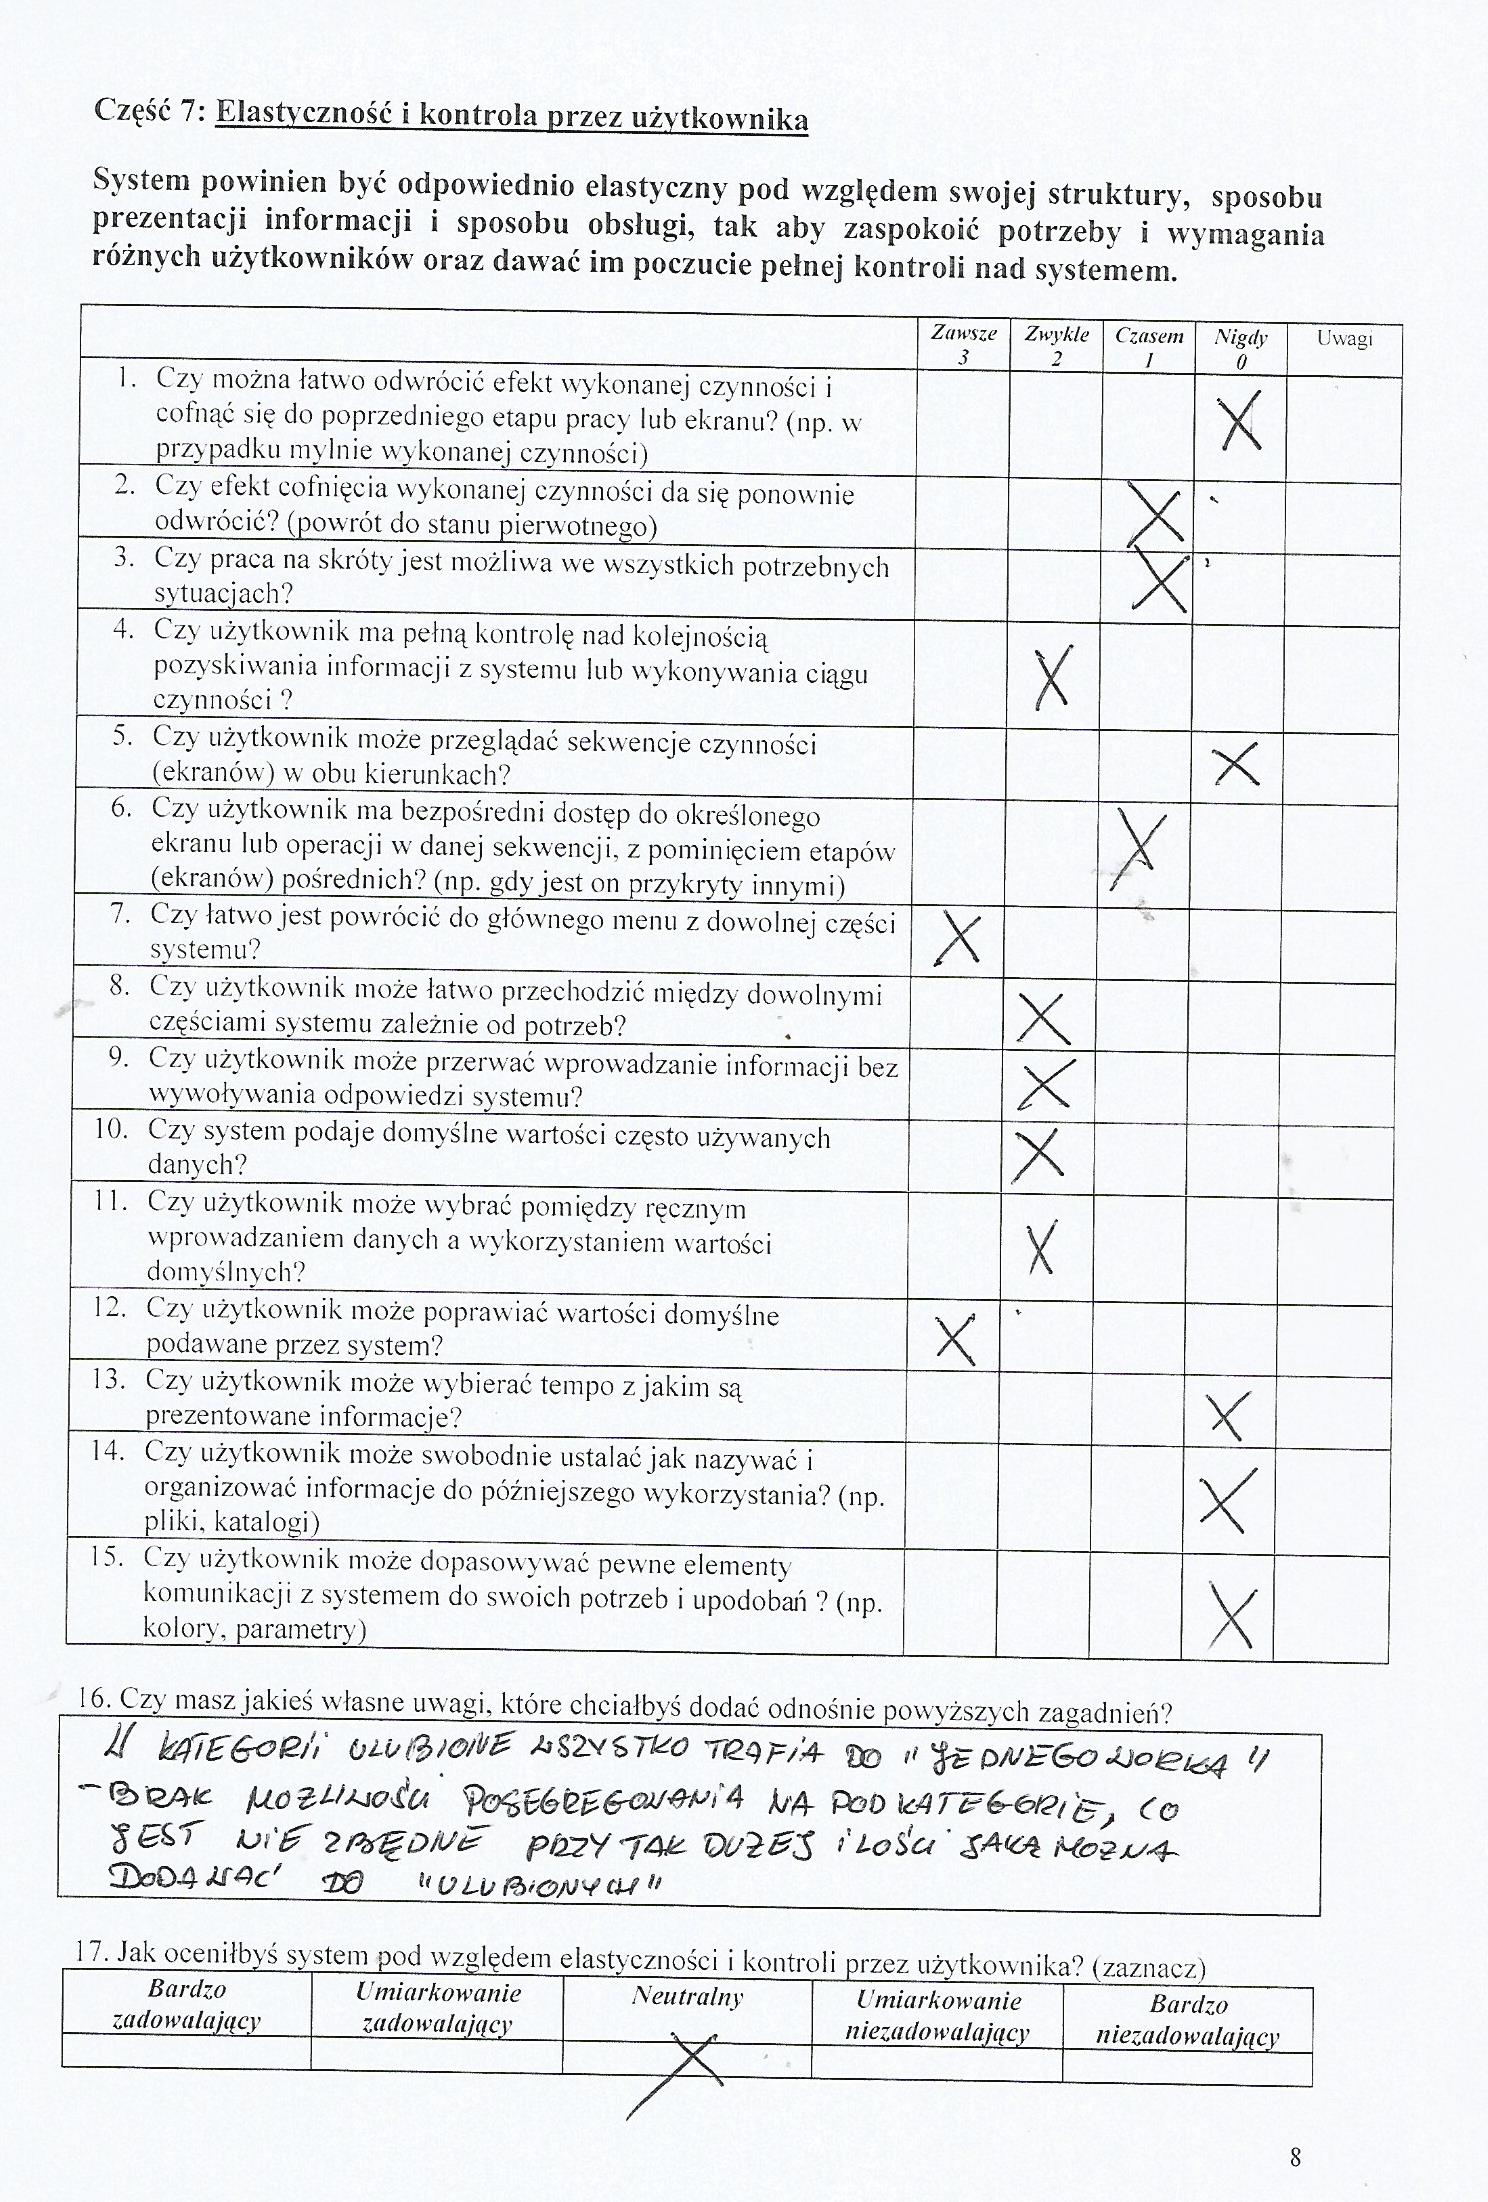 Część 7: Elastyczność i kontrola przez użytkownika
System powinien być odpowiednio elastyczny pod względem swojej struktury, sposobu
prezentacji informacji i sposobu obsługi, tak aby zaspokoić potrzeby i wymagania
różnych użytkowników oraz dawać im poczucie pełnej kontroli nad systemem.
Zawsze Zwykle Czasem Nigdy Uwagi
3 2 1 0
1. Czy można łatwo odwrócić efekt wykonanej czynności i
cofnąć się do poprzedniego etapu pracy lub ekranu? (np. w
przypadku mylnie wykonanej czynności) X
2. Czy efekt cofnięcia wykonanej czynności da się ponownie
odwrócić? (powrót do stanu pierwotnego) X
3. Czy praca na skróty jest możliwa we wszystkich potrzebnych
sytuacjach? X
4. Czy użytkownik ma pełną kontrolę nad kolejnością
pozyskiwania informacji z systemu lub wykonywania ciągu
czynności ? X
5. Czy użytkownik może przeglądać sekwencje czynności
(ekranów) w obu kierunkach? X
6. Czy użytkownik ma bezpośredni dostęp do określonego
ekranu lub operacji w danej sekwencji, z pominięciem etapów
(ekranów) pośrednich? (np. gdy jest on przykryty innymi) X
7. Czy łatwo jest powrócić do głównego menu z dowolnej części
systemu? X
8. Czy użytkownik może łatwo przechodzić między dowolnymi
częściami systemu zależnie od potrzeb? X
9. Czy użytkownik może przerwać wprowadzanie informacji bez
wywoływania odpowiedzi systemu? X
10. Czy system podaje domyślne wartości często używanych
danych? X
11. Czy użytkownik może wybrać pomiędzy ręcznym
wprowadzaniem danych a wykorzystaniem wartości
domyślnych? X
12. Czy użytkownik może poprawiać wartości domyślne
podawane przez system? X
13. Czy użytkownik może wybierać tempo z jakim są
prezentowane informacje? X
14. Czy użytkownik może swobodnie ustalać jak nazywać i
organizować informacje do późniejszego wykorzystania? (np.
pliki, katalogi) X
15. Czy użytkownik może dopasowywać pewne elementy
komunikacji z systemem do swoich potrzeb i upodobań ? (np.
kolory, parametry) X
16. Czy masz jakieś własne uwagi, które chciałbyś dodać odnośnie powyższych zagadnień?
W KATEGORII ULUBIONE WSZYSTKO TRAFIA DO "JEDNEGO WORKA"
- BRAK MOŻLIWOŚCI POSEGREGOWANIA NA PODKATEGORIE, CO
JEST NIEZBĘDNE PRZY TAK DUŻEJ ILOŚCI JAKĄ MOŻNA
DODAWAĆ DO "ULUBIONYCH"
17. Jak oceniłbyś system pod względem elastyczności i kontroli przez użytkownika? (zaznacz)
Bardzo Umiarkowanie Neutralny Umiarkowanie Bardzo
zadowalający zadowalający niezadowalający niezadowalający
X
8